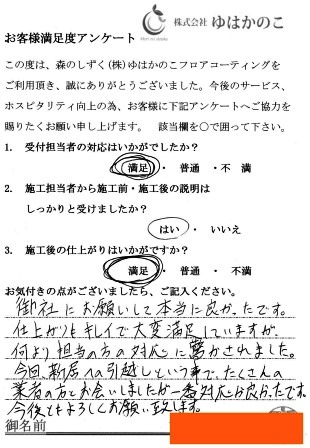 株式会社 ゆはかのこ
お客様満足度アンケート
この度は、森のしずく(株)ゆはかのこフロアコーティングを
ご利用頂き、誠にありがとうございました。今後のサービス、
ホスピタリティ向上の為、お客様に下記アンケートへご協力を
賜りたくお願い申し上げます。 該当欄を○で囲って下さい。
1. 受付担当者の対応はいかがでしたか?
満足 ・ 普通 ・不 満
2. 施工担当者から施工前・施工後の説明は
しっかりと受けましたか?
はい ・ いいえ
3. 施工後の仕上がりはいかがですか?
満足 ・ 普通 ・ 不満
お気付きの点がございましたら、ご記入ください。
御社にお願いして本当に良かったです。
仕上がりもキレイで大変満足していますが、
何より担当の方の対応に驚かされました。
今回新居への引越しという事で、たくさんの
業者の方とお会いしましたが一番対応が良かったです。
今後ともよろしくお願い致します。
御名前